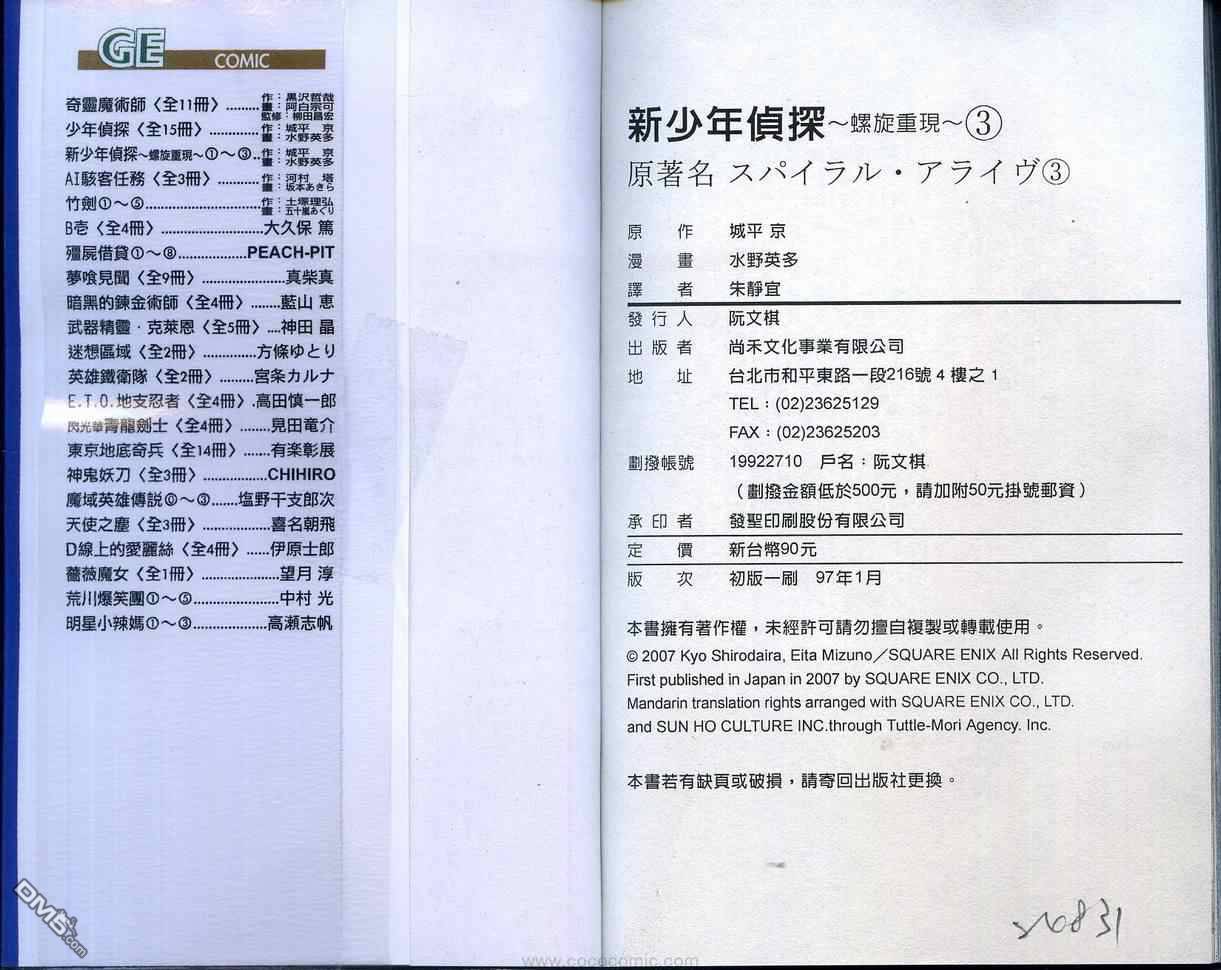 GE COMIC
奇靈魔術師〈全11冊〉.........作：黒沢哲哉
畫：阿白宗可
監修：柳田昌宏
少年偵探〈全15冊〉.............作：城平 京
畫：水野英多
新少年偵探～螺旋重現～①～③..作：城平 京
畫：水野英多
AI駭客任務〈全3冊〉...........作：河村 塔
畫：坂本あきら
竹劍①～⑤..........................作：土塚理弘
畫：五十嵐あぐり
B壱〈全4冊〉..........................大久保 篤
殭屍借貸①～⑧.................PEACH-PIT
夢喰見聞〈全9冊〉.....................真柴真
暗黑的鍊金術師〈全4冊〉.......藍山 恵
武器精靈・克萊恩〈全5冊〉....神田 晶
迷想區域〈全2冊〉.............方條ゆとり
英雄鐵衛隊〈全2冊〉.........宮条カルナ
E.T.O.地支忍者〈全4冊〉.高田慎一郎
閃光華青龍劍士〈全4冊〉........見田竜介
東京地底奇兵〈全14冊〉.......有楽彰展
神鬼妖刀〈全3冊〉................CHIHIRO
魔域英雄傳説⓪～③.......塩野干支郎次
天使之塵〈全3冊〉.................喜名朝飛
D線上的愛麗絲〈全4冊〉......伊原士郎
薔薇魔女〈全1冊〉....................望月 淳
荒川爆笑團①～⑤......................中村 光
明星小辣媽①～③...................高瀬志帆
新少年偵探～螺旋重現～③
原著名 スパイラル・アライヴ③
原作 城平 京
漫畫 水野英多
譯者 朱靜宜
發行人 阮文棋
出版者 尚禾文化事業有限公司
地址 台北市和平東路一段216號 4 樓之 1
TEL：(02)23625129
FAX：(02)23625203
劃撥帳號 19922710 戶名：阮文棋
（劃撥金額低於500元，請加附50元掛號郵資）
承印者 發聖印刷股份有限公司
定價 新台幣90元
版次 初版一刷 97年1月
本書擁有著作權，未經許可請勿擅自複製或轉載使用。
© 2007 Kyo Shirodaira, Eita Mizuno／SQUARE ENIX All Rights Reserved.
First published in Japan in 2007 by SQUARE ENIX CO., LTD.
Mandarin translation rights arranged with SQUARE ENIX CO., LTD.
and SUN HO CULTURE INC.through Tuttle-Mori Agency. Inc.
本書若有缺頁或破損，請寄回出版社更換。
DM5.com
www.cococomic.com